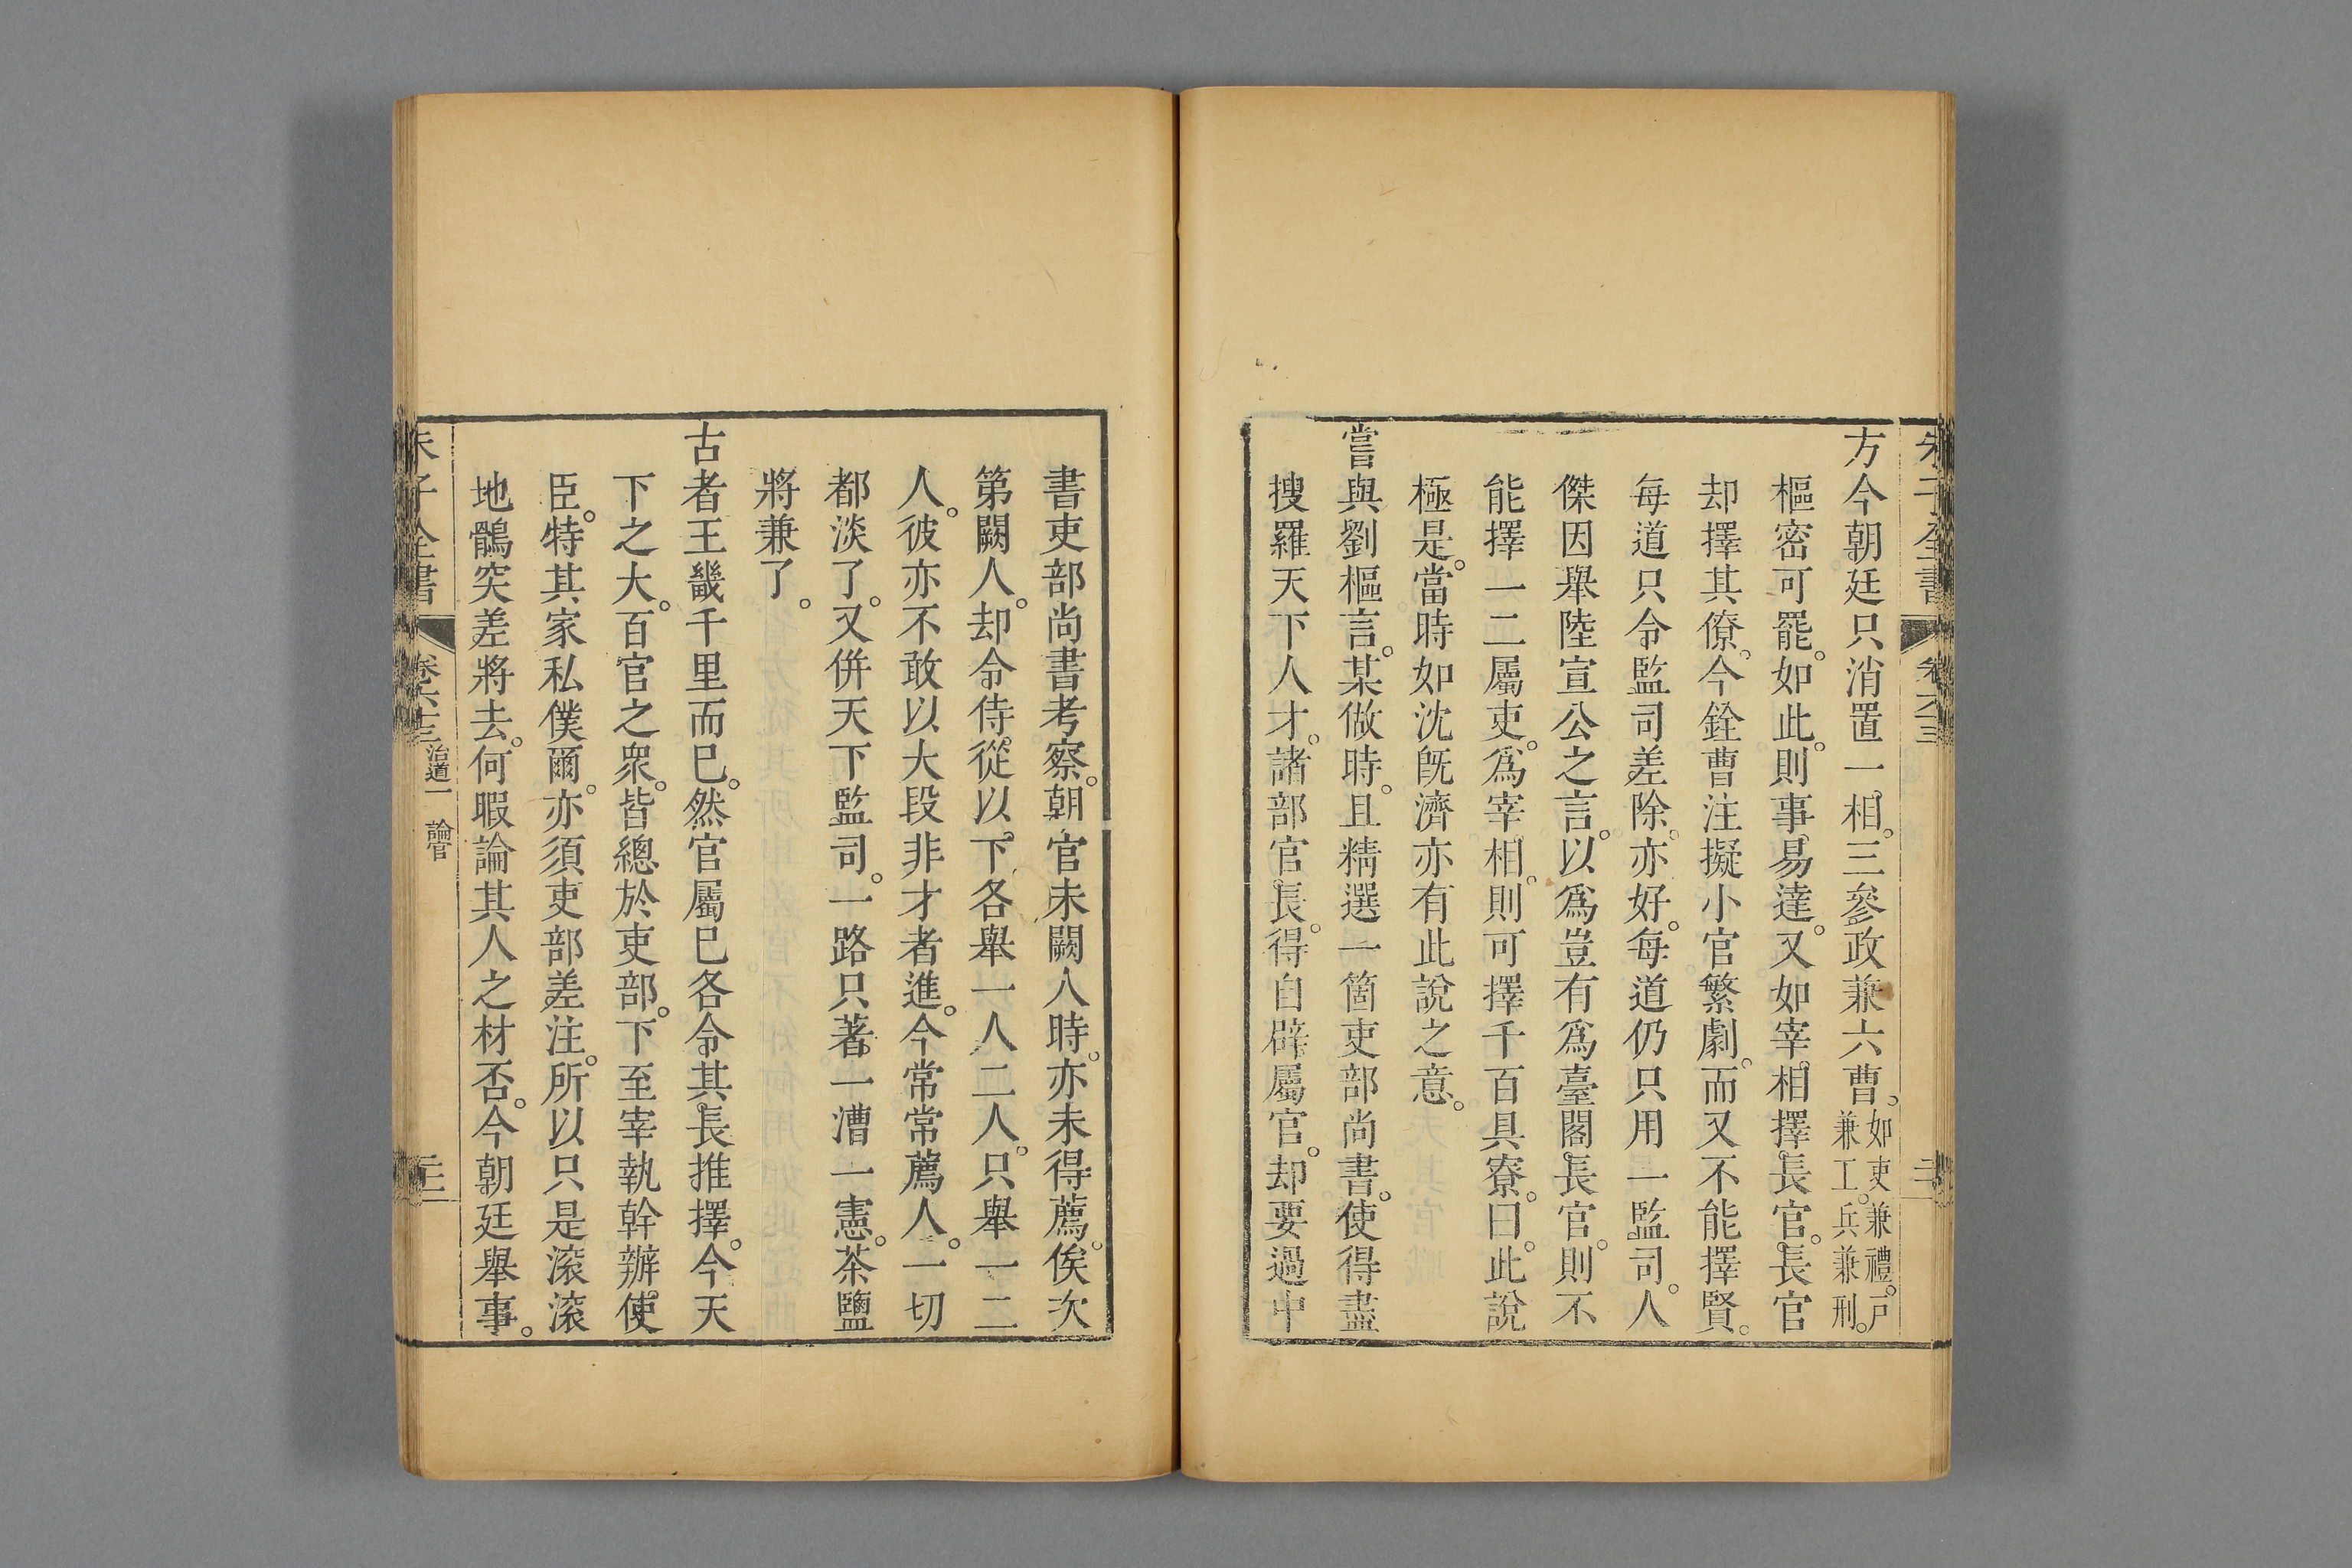 朱子全書 卷六十三
方今朝廷只消置一相。三參政兼六曹。如吏兼禮。戸兼工。兵兼刑。
樞密可罷。如此。則事易達。又如宰相擇長官。長官
却擇其僚。今銓曹注擬小官繁劇。而又不能擇賢。
每道只令監司差除。亦好。每道仍只用一監司。人
傑因舉陸宣公之言。以爲豈有爲臺閣長官。則不
能擇一二屬吏。爲宰相。則可擇千百具寮。曰。此說
極是。當時如沈旣濟亦有此說之意。
嘗與劉樞言。某做時。且精選一箇吏部尚書。使得盡
搜羅天下人才。諸部官長。得自辟屬官。却要過中
書吏部尚書考察。朝官未闕人時。亦未得薦。俟次
第闕人。却令侍從以下各舉一人二人。只舉一二
人。彼亦不敢以大段非才者進。今常常薦人。一切
都淡了。又併天下監司。一路只著一漕一憲。茶鹽
將兼了。
古者王畿千里而巳。然官屬巳各令其長推擇。今天
下之大。百官之衆。皆總於吏部。下至宰執幹辦使
臣。特其家私僕爾。亦須吏部差注。所以只是滚滚
地鶻突差將去。何暇論其人之材否。今朝廷舉事。
朱子全書 卷六十三 治道一 論官